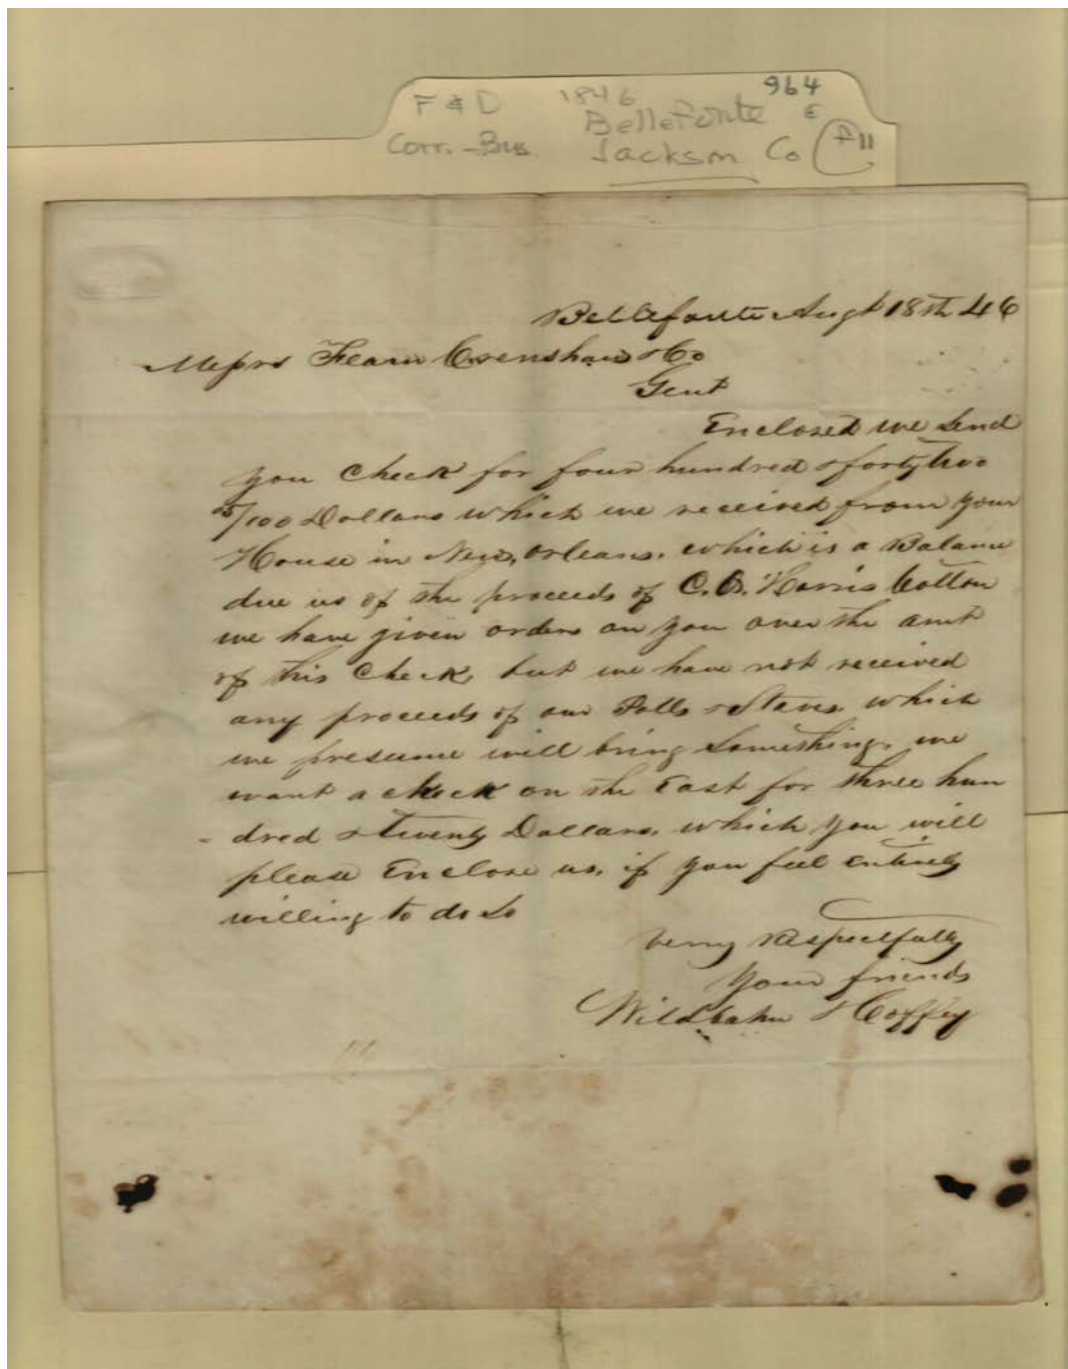 F & D 1846 964
Bellefonte E
Corr. - Bus Jackson Co
Bellefonte Augt 18th 46
Messrs Fearn Crenshaw & Co
Gent
Enclosed we Send
you Check for four hundred & forty two
/100 Dollars which we received from your
House in New, orleans. which is a Balance
due us of the proceeds of C. O. Harris Cotton
we have given orders on you over the amt
of this Check, but we have not received
any proceeds of our & Staves which
we presume will bring Something, we
want a check on the East for three hun
- dred & twenty Dollars, which you will
please Enclose us, if you feel entirely
willing to do So
Verry Respectfully
Your friends
Wildbahn & Coffey